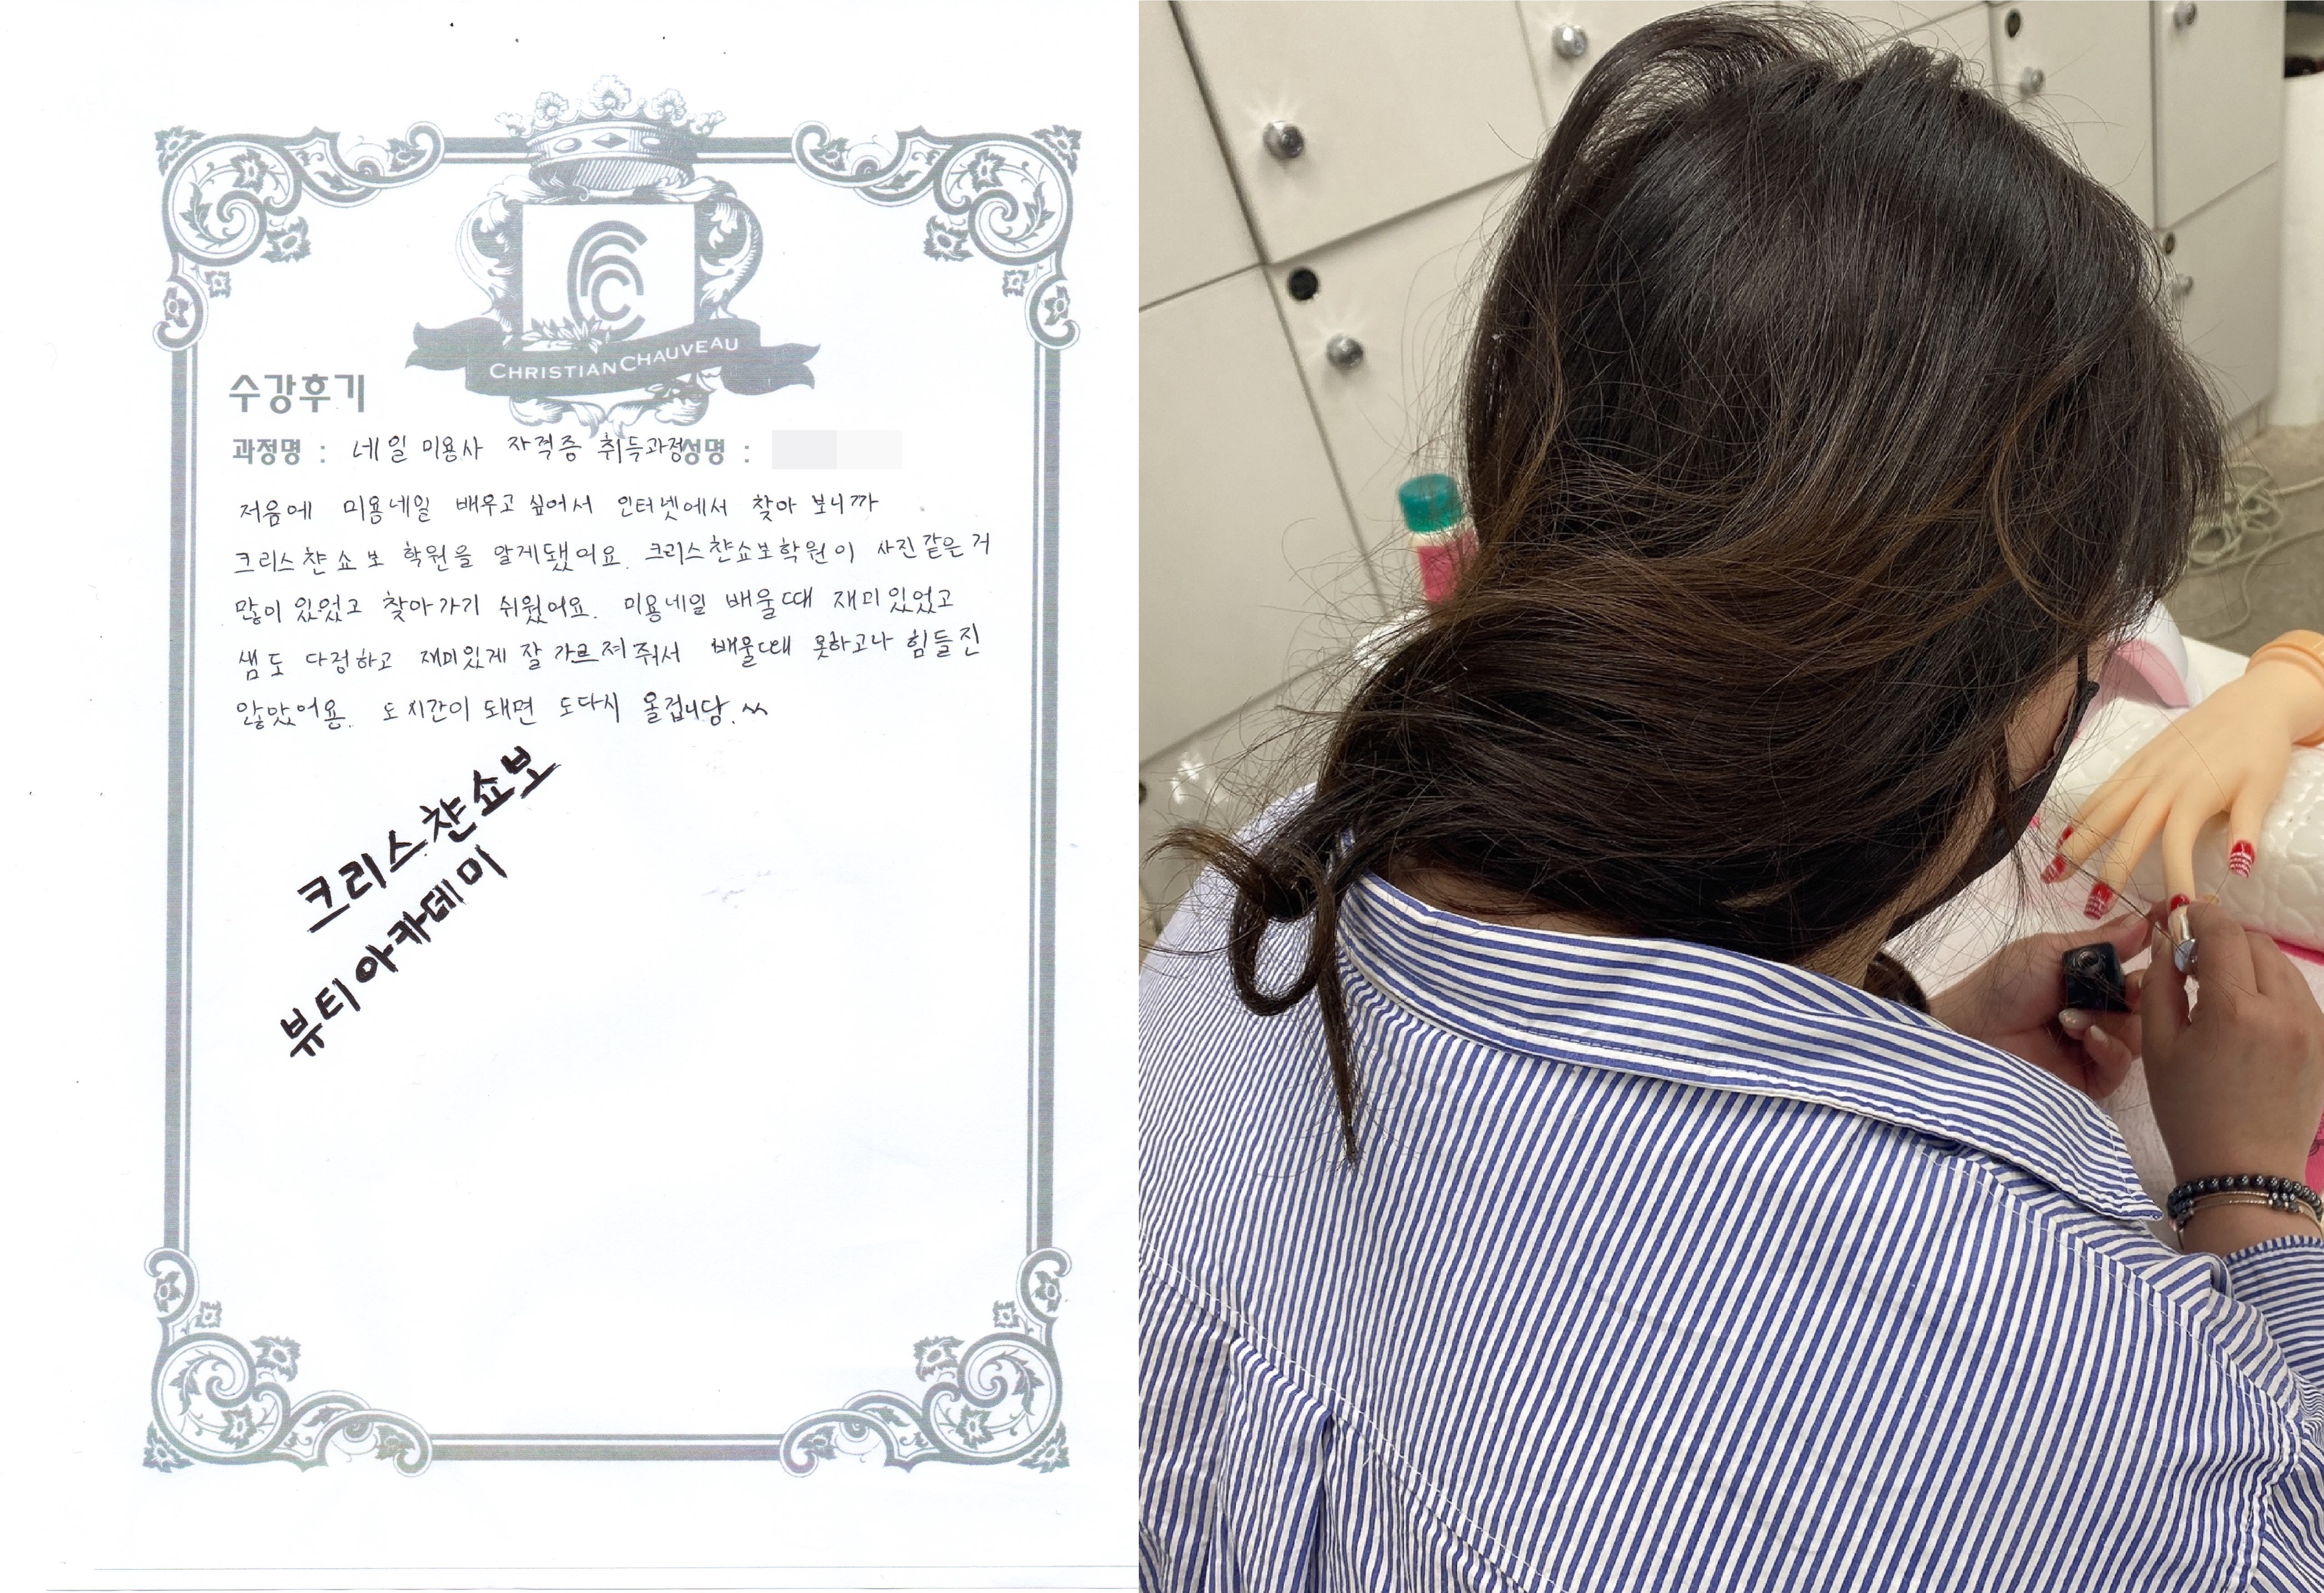 CHRISTIANCHAUVEAU
수강후기
과정명 : 네일 미용사 자격증 취득과정 성명 :
저음에 미용네일 배우고 싶어서 인터넷에서 찾아 보니까
크리스챤쇼보 학원을 알게됐어요. 크리스챤쇼보학원이 사진같은 거
많이 있었고 찾아가기 쉬웠어요. 미용네일 배울때 재미있었고
샘도 다정하고 재미있게 잘 가르쳐줘서 배울때 못하고나 힘들진
않았어용. 또 시간이 돼면 또다시 올겁니당.^^
크리스챤쇼보
뷰티아카데미